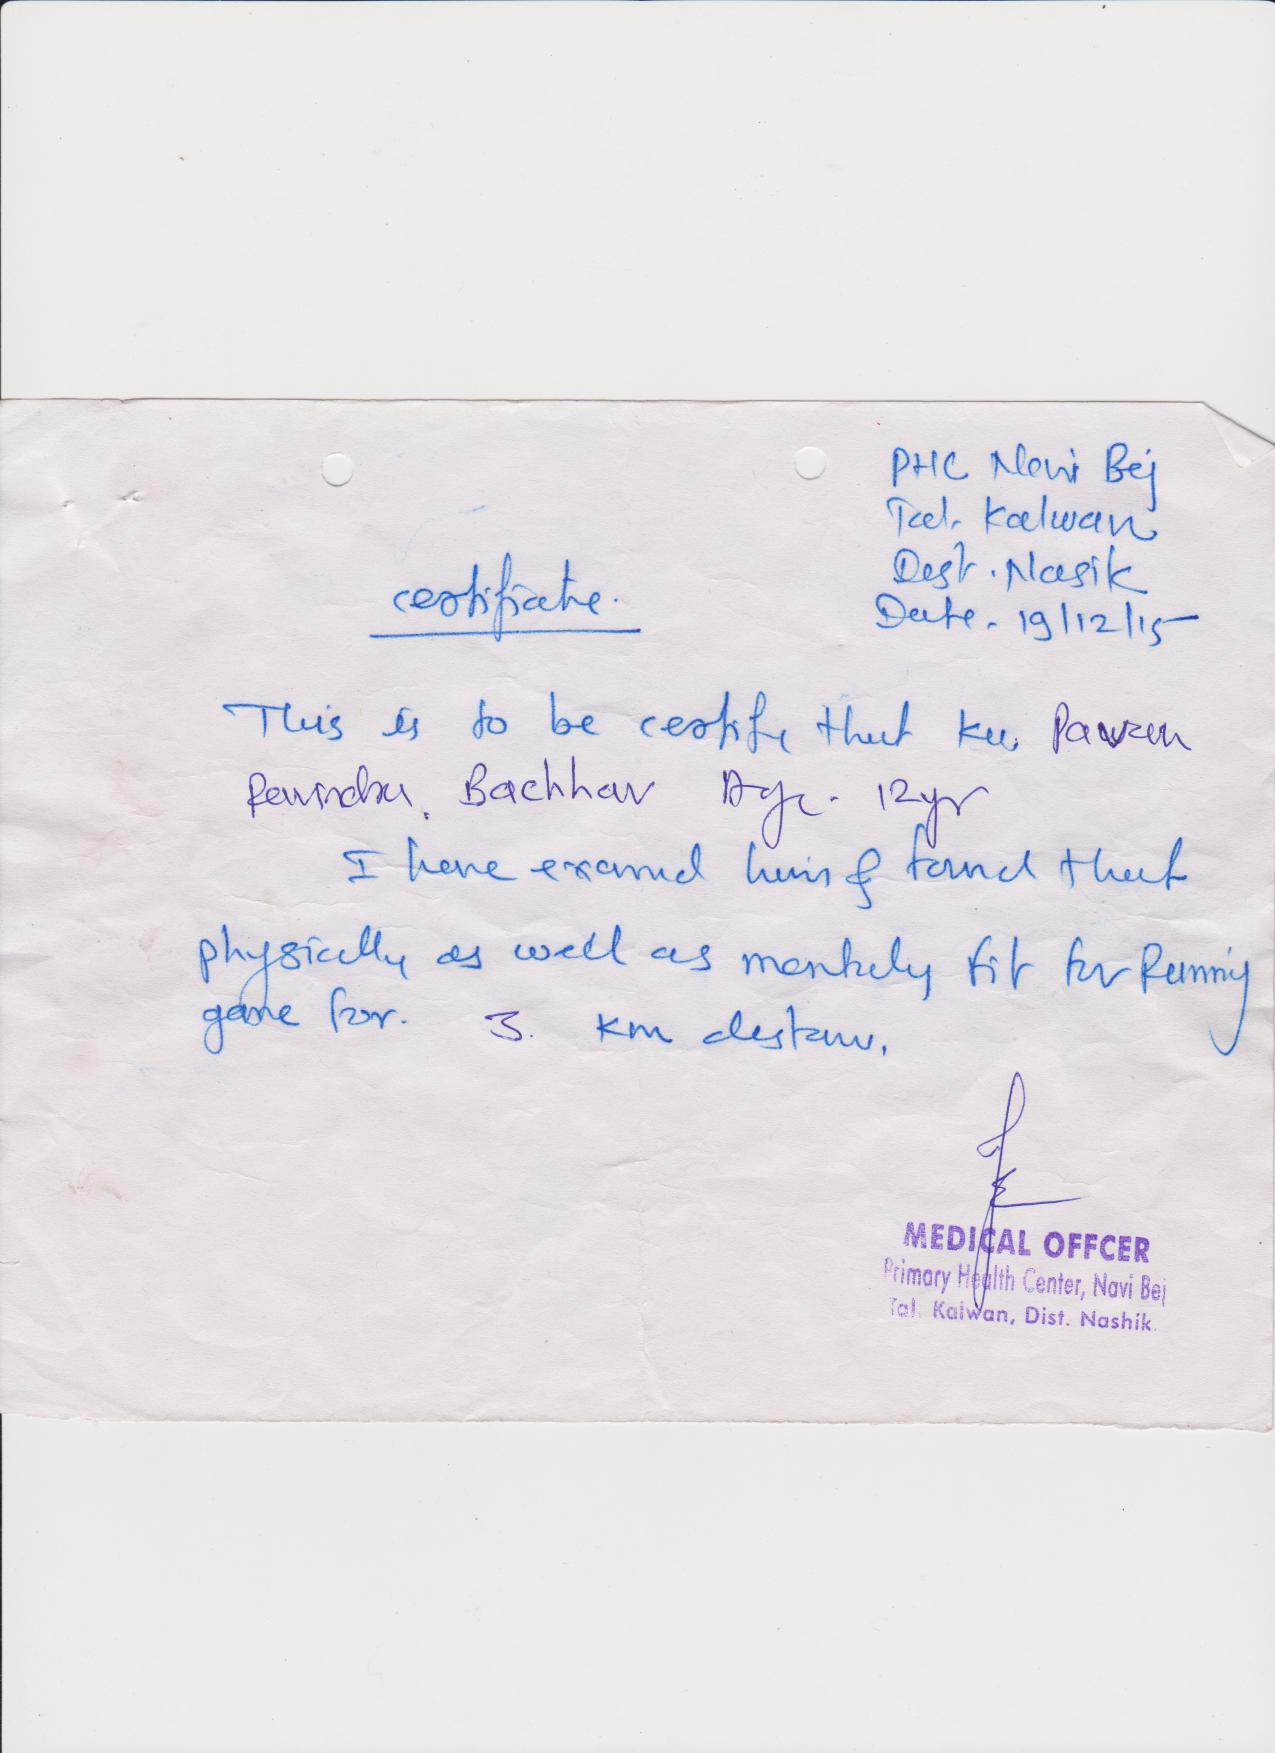 PHC Navi Bej
Tal. Kalwan
Dist. Nasik
Date. 19/12/15
certificate.
This is to be certify that ku. Pawan
Ravindra. Bachhav Age. 12yr
I have examined him & found that
physically as well as mentaly fit for Running
game for. 3. Km distanc.
MEDICAL OFFCER
Primary Health Center, Navi Bej
Tal. Kalwan, Dist. Nashik.